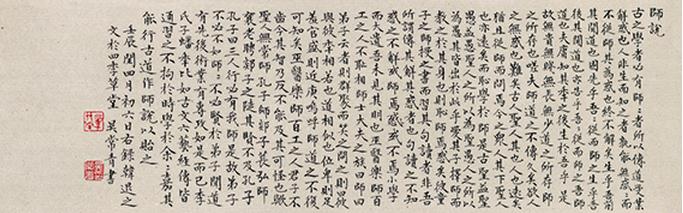 師說
古之學者必有師師者所以傳道受業
解惑也人非生而知之者孰能無惑惑而
不從師其為惑也終不解矣生乎吾前
其聞道也固先乎吾吾從而師之生乎吾
後其聞道也亦先乎吾吾從而師之吾師
道也夫庸知其年之先後生於吾乎是
故無貴無賤無長無少道之所存師
之所存也嗟夫師道之不傳也久矣欲人
之無惑也難矣古之聖人其出人也遠矣
猶且從師而問焉今之衆人其下聖人
也亦遠矣而恥學於師是故聖益聖
愚益愚聖人之所以為聖愚人之所以
為愚其皆出於此乎愛其子擇師而
教之於其身也則恥師焉惑矣彼童
子之師授之書而習其句讀者非吾
所謂傳其道解其惑者也句讀之不知
惑之不解或師焉或不焉小學
而大遺吾未見其明也巫醫樂師百
工之人不恥相師士大夫之族曰師曰
弟子云者則群聚而笑之問之則曰彼
與彼年相若也道相似也位卑則足
羞官盛則近諛嗚呼師道之不復
可知矣巫醫樂師百工之人君子不
齒今其智乃反不能及其可怪也歟
聖人無常師孔子師郯子萇弘師
襄老聃郯子之徒其賢不及孔子
孔子曰三人行必有我師是故弟子
不必不如師師不必賢於弟子聞道
有先後術業有專攻如是而已李
氏子蟠年十七好古文六藝經傳皆
通習之不拘於時學於余余嘉其
能行古道作師說以貽之
壬辰閏四月初六日右錄韓退之
文於四季草堂 吳常青書